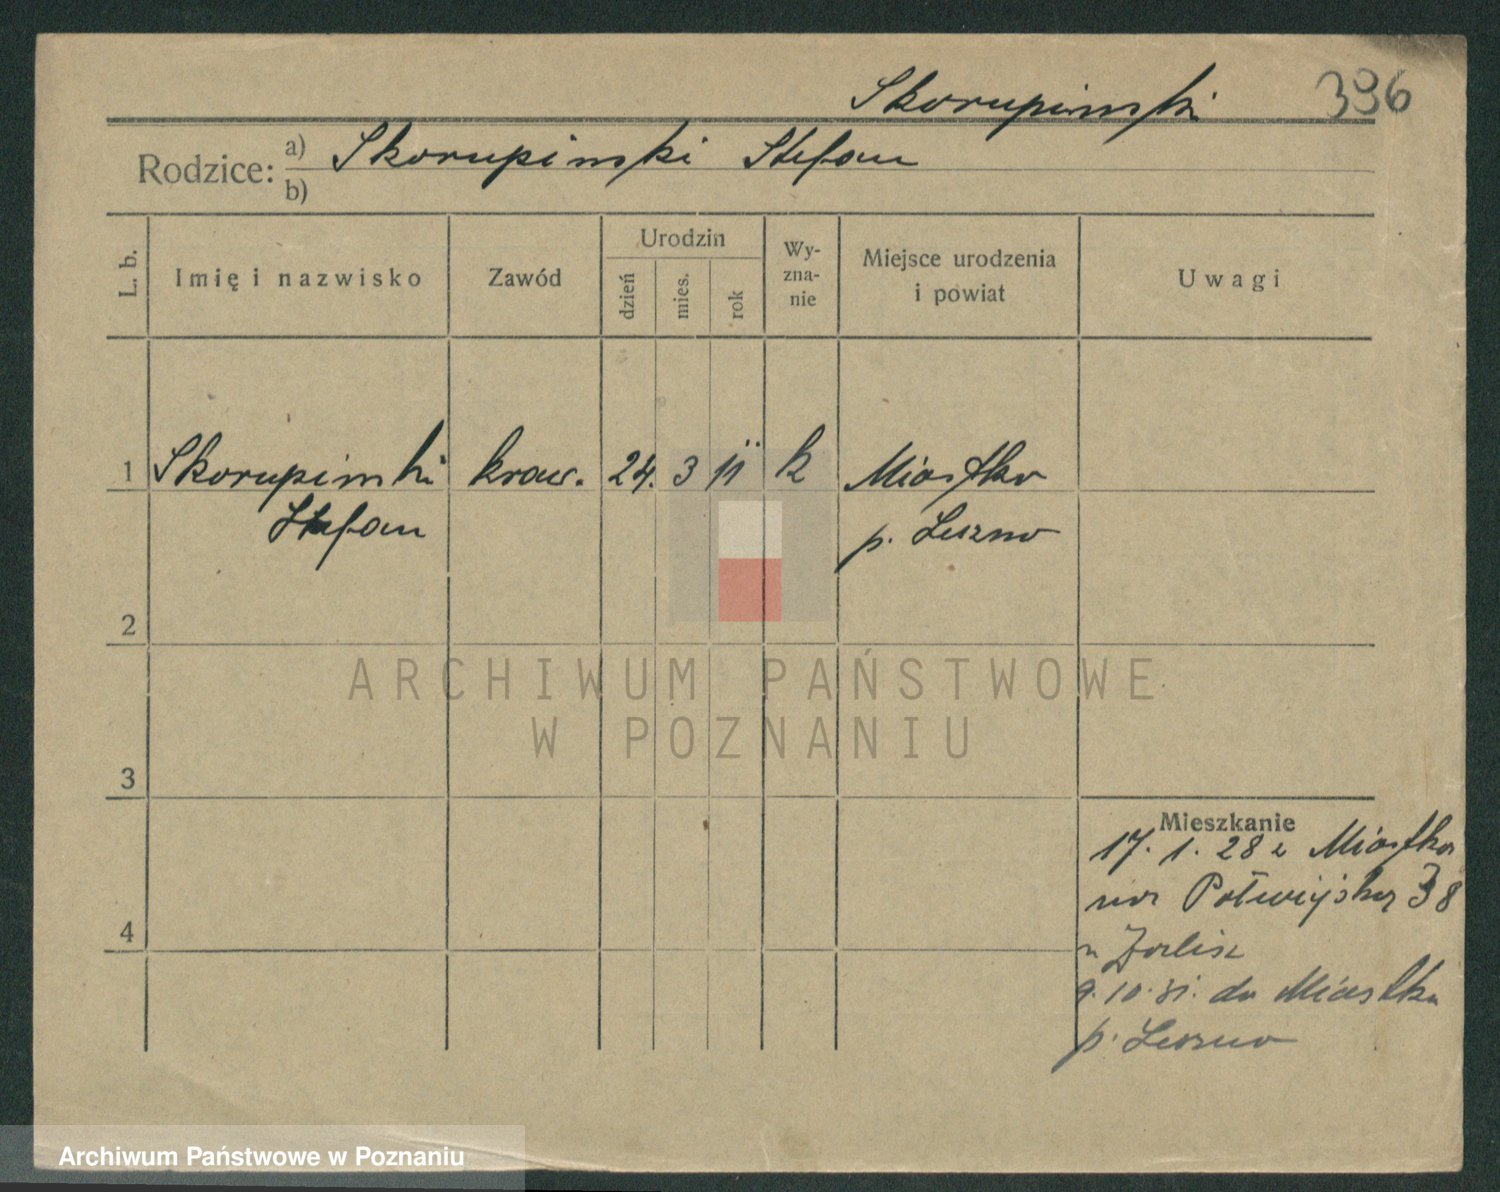 Skorupinski 396
Rodzice: a) Skorupinski Stefan
b)
L. b. Imię i nazwisko Zawód Urodzin dzień mies. rok Wyznanie Miejsce urodzenia i powiat Uwagi
1 Skorupinski kraw. 24. 3 11 k Miastko
Stefan p. Leszno
2
ARCHIWUM PAŃSTWOWE
W POZNANIU
3
Mieszkanie
17. 1. 28 z Miastka
na Półwiejską 38
4
u
9. 10. 31. do Miastka
p. Leszno
Archiwum Państwowe w Poznaniu